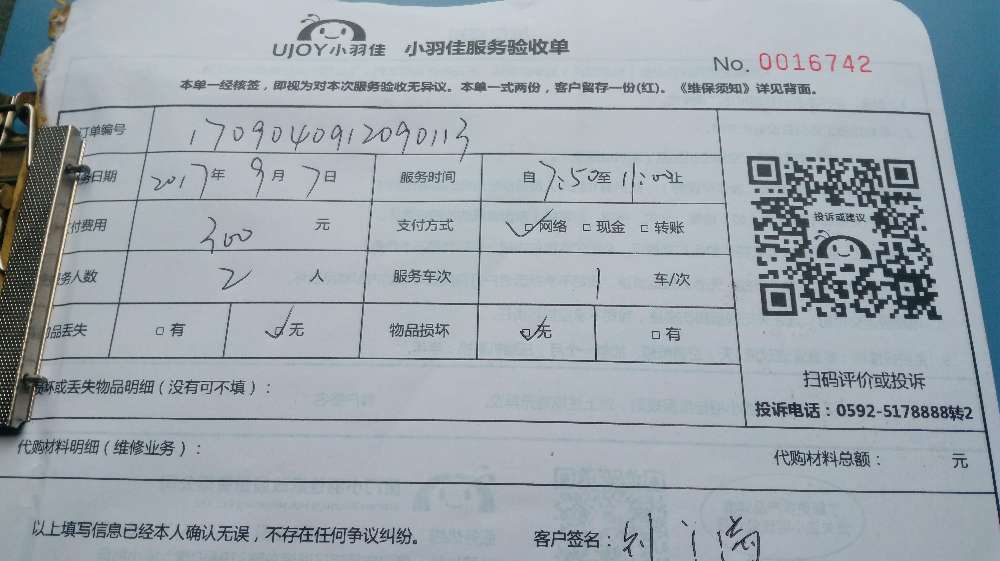 UJOY小羽佳 小羽佳服务验收单
No. 0016742
本单一经核签，即视为对本次服务验收无异议。本单一式两份，客户留存一份(红)。《维保须知》详见背面。
订单编号 1709040912090113
日期 2017年9月7日 服务时间 自7:50至11:00止
付费用 300 元 支付方式 网络 现金 转账
务人数 2 人 服务车次 1 车/次
物品丢失 有 无 物品损坏 无 有
投诉或建议
扫码评价或投诉
投诉电话：0592-5178888转2
坏或丢失物品明细（没有可不填）：
代购材料明细（维修业务）： 代购材料总额： 元
以上填写信息已经本人确认无误，不存在任何争议纠纷。 客户签名：